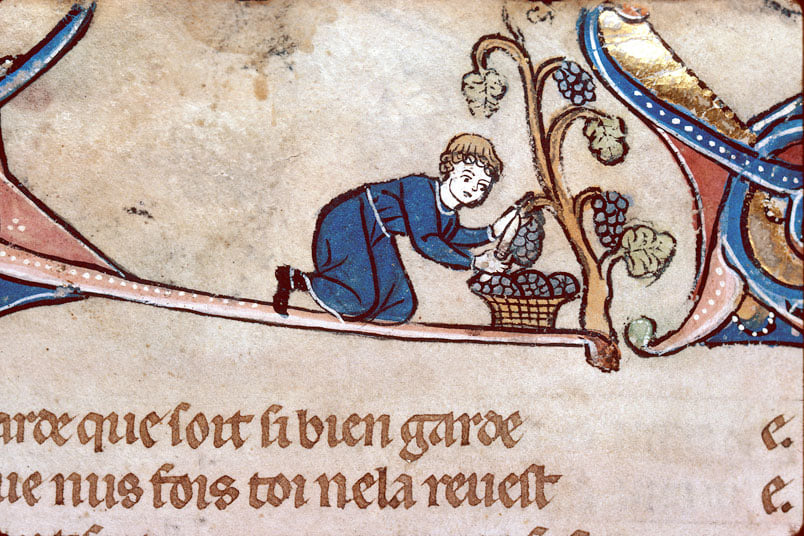 arde que soit si bien garde
ue nus fors toi ne la revest
e.
e.